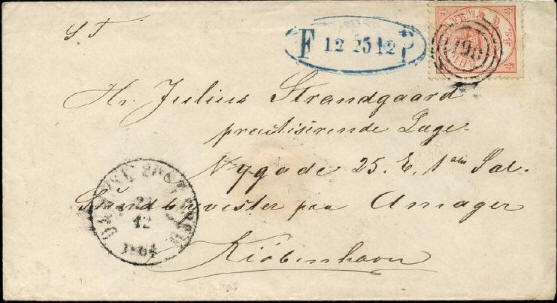 S. T.
F 12 25 12 P
Hr. Julius Strandgaard
practiserende Læge.
Nygade 25. E, 1ste Sal.
paa Amager
Kiöbenhavn
12
1864